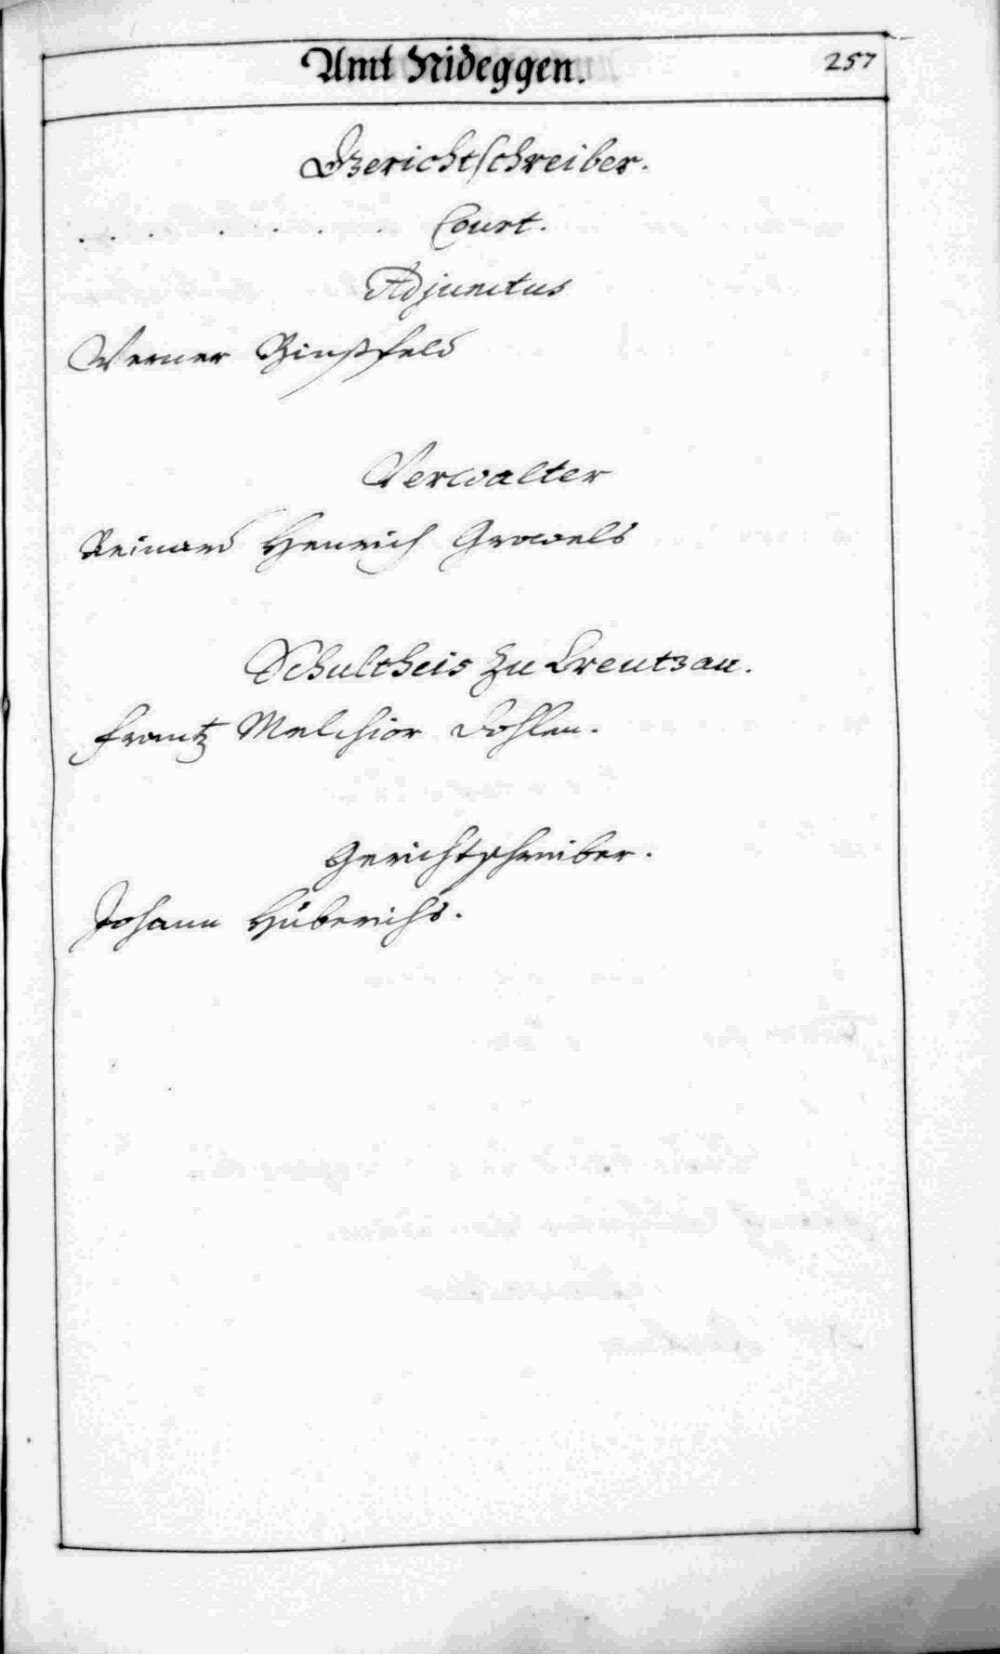 Amt Nideggen.
257
Gerichtschreiber.
. . . . . . . . Court.
Adjunctus
Werner Binßfeld
Verwalter
Reinard Henrich Growels
Schultheis zu Creutzau.
Frantz Melchior Dohlen.
Gerichtschreiber.
Johann Hüberichs.